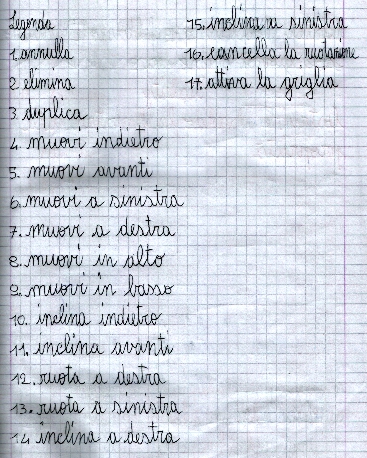 Legenda
1. annulla
2. elimina
3. duplica
4. muovi indietro
5. muovi avanti
6. muovi a sinistra
7. muovi a destra
8. muovi in alto
9. muovi in basso
10. inclina indietro
11. inclina avanti
12. ruota a destra
13. ruota a sinistra
14 inclina a destra
15. inclina a sinistra
16. cancella la ruotazione
17. attiva la griglia